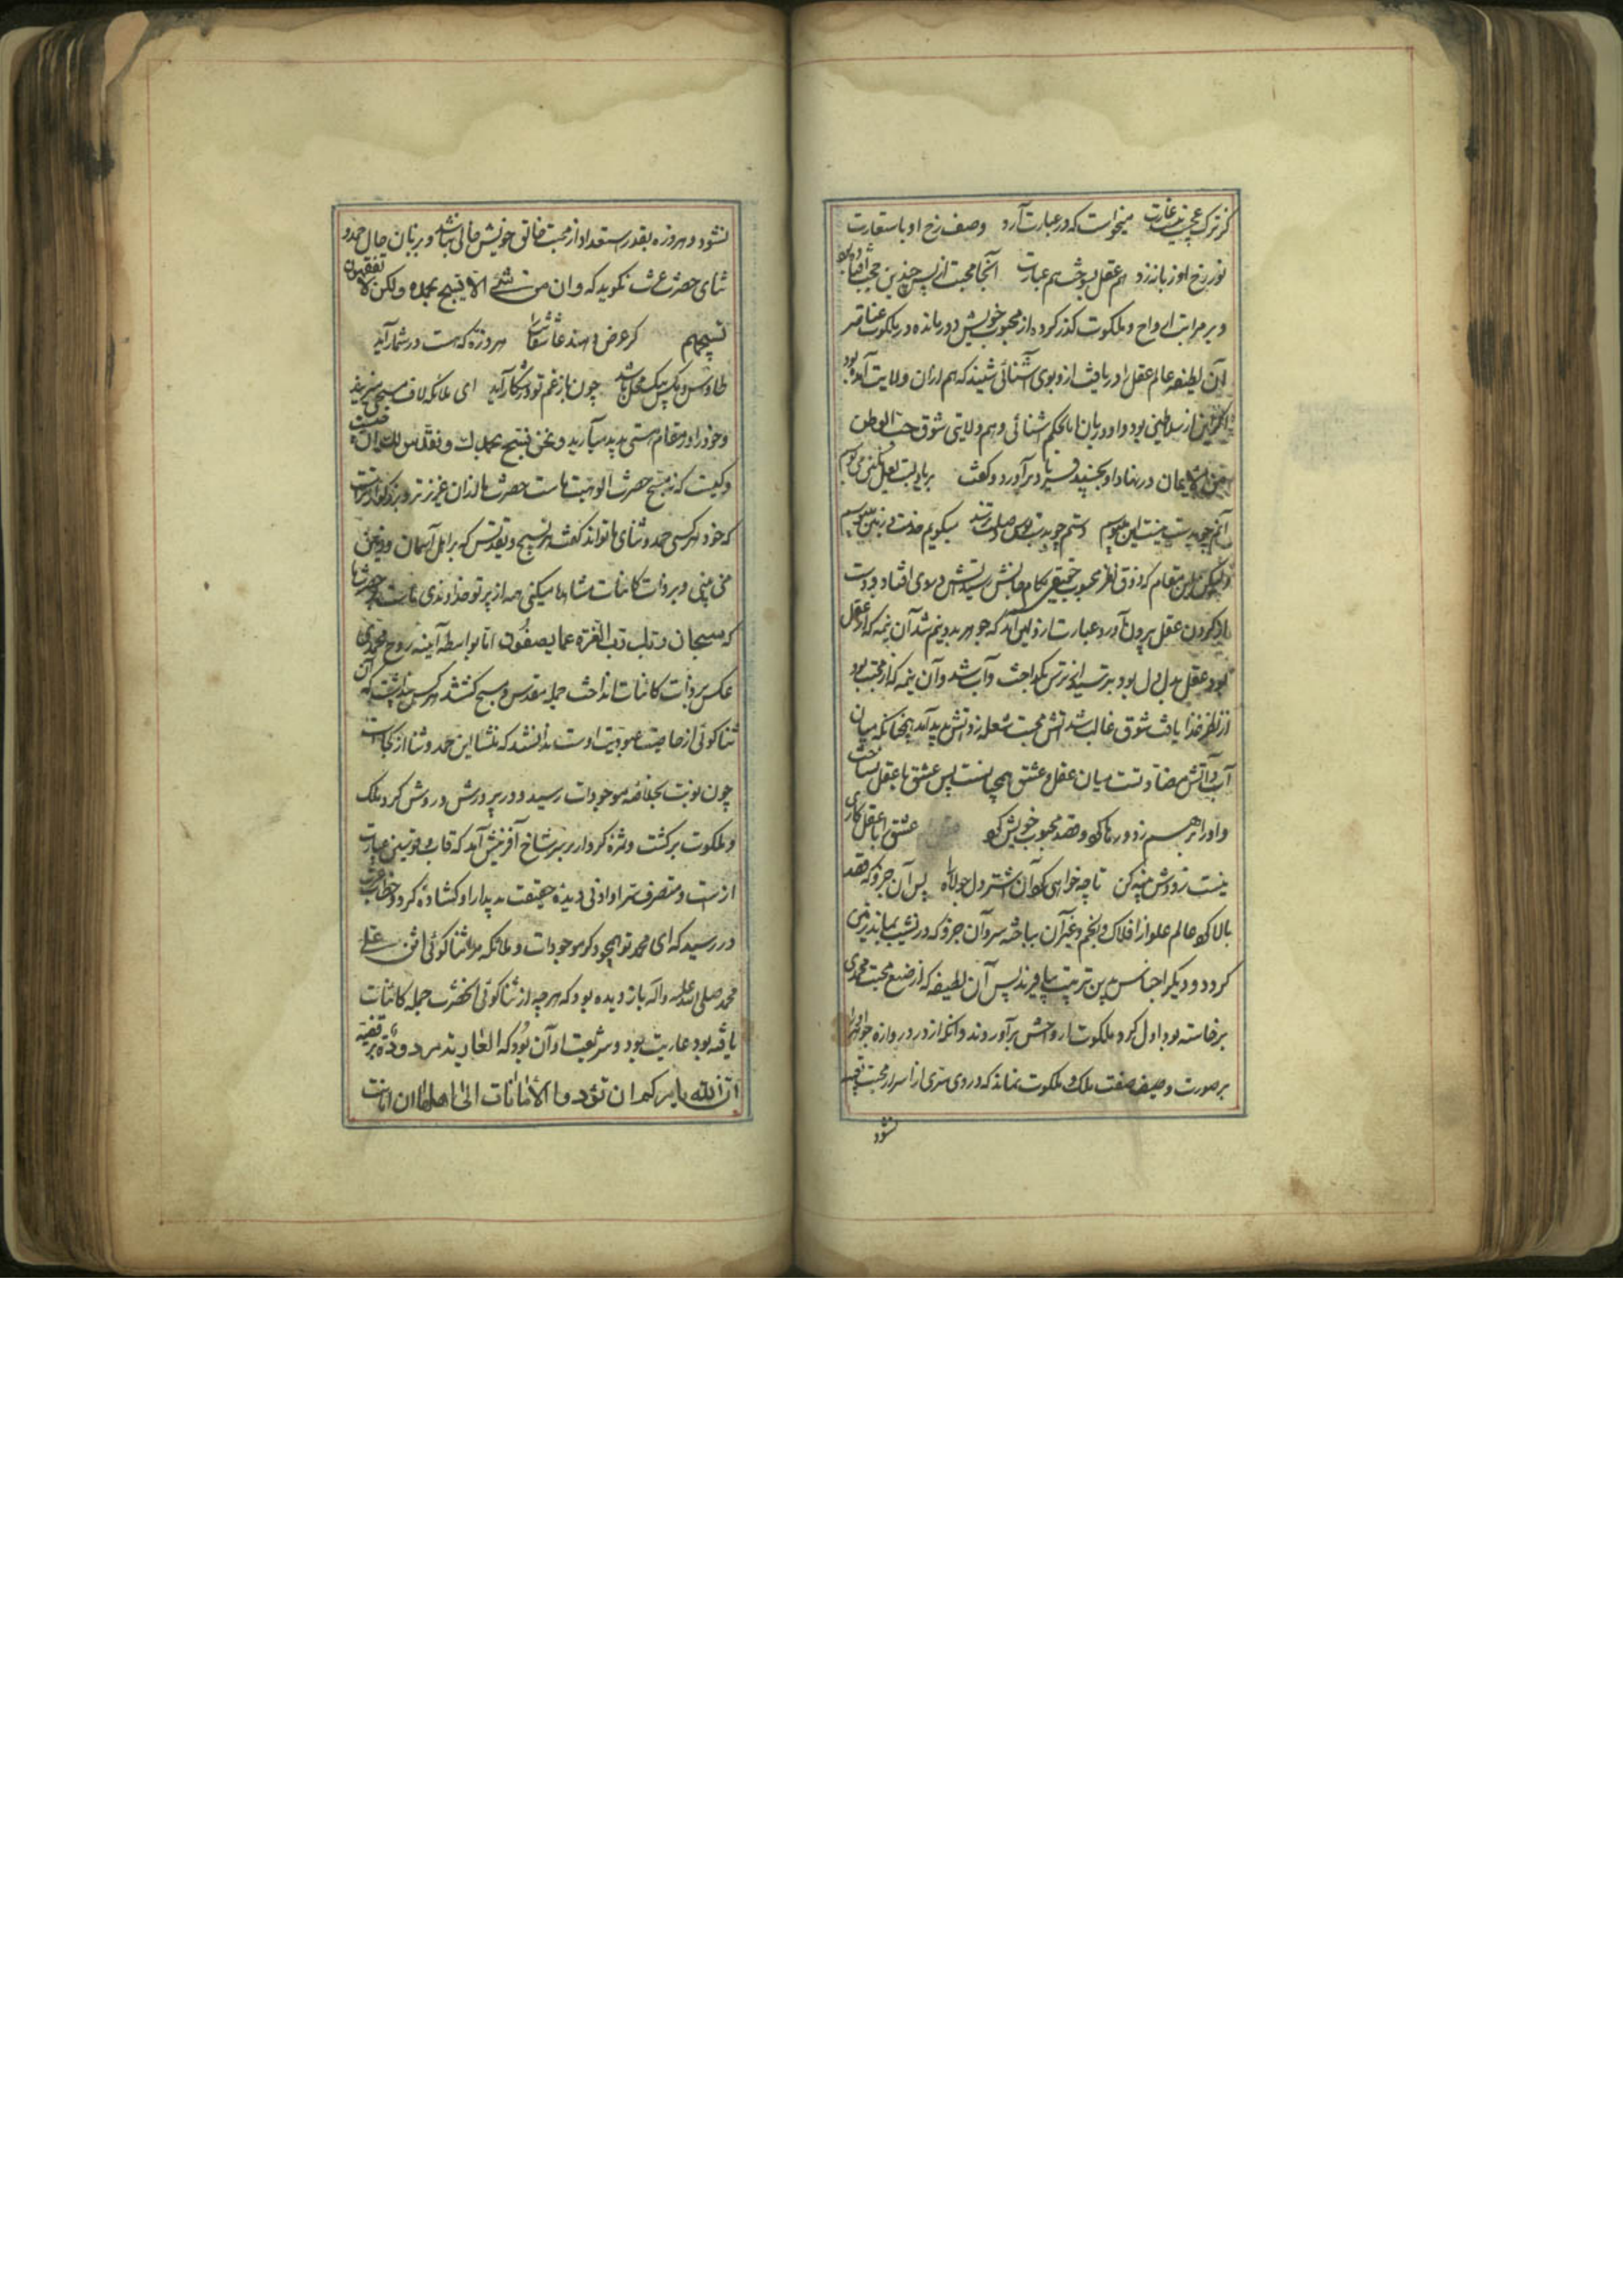 گر ترک عجب نیست غارت میخواست که در عبارت آرد وصف رخ او باستعارت
نور رخ او زبانه زد هم عقل بسوخت هم عبارت آنجا محبت از پس چندین حجب افتاده بود
و بر مراتب ارواح و ملکوت گذر کرده از محبوب خویش دور مانده در ملکوت عناصر
آن لطیفه عالم عقل را دریافت از و بوی آشنائی شنید که هم ازان ولایت آمده بود
اگرچه این از سلاطین بود و او دربان اما بحکم آشنائی و هم ولایتی شوق حب الوطن
من الایمان در نهاد او بجنبید سر برآورد و گفت بر یاد لبت لعل نگین می بوسم
آنم چو بدست نیست این می بوسم دستم چو بدست بوس وصلت نرسد میگویم خدمت و زمین می بوسم
ولیکن این مقام که ذوق نظر محبوب حقیقی بکام جانش رسید آتش در وی افتاد و دست
بازو کردن عقل بیرون آورد عبارت ازین آمد که جوهر بدو نیم شد آن نیمه که از عقل
بود عقل بد دل بود بترسید از ترس بگداخت و آب شد و آن نیمه که از محبت بود
از نظر غذا یافت شوق غالب شد آتش محبت شعله زد آتش پدید آمد همچنانکه میان
آب و آتش مضادتست میان عقل و عشق همچنانست پس عشق با عقل نساخت
و او را بر هم زد و رها کرد و قصد محبوب خویش کرد عشق با عقل کاری
نیست زودش پنبه کن تا چه خواهی کرد آن اشتر دل جولاه پس آن جزو که قصد
بالا کرد عالم علو از افلاک و انجم و غیر آن ساخته شد و آن جزو که در نشیب بماند زمین
گردد و دیگر اجناس برین ترتیب بیافریند پس آن لطیفه که از صنع محبت محمدی
برخاسته بود اول گرد ملکوت ارواحش برآوردند و آنکه از در دروازه جواهر
بر صورت وصیف صفت ملک و ملکوت نماند که در وی سری از اسرار محبت تعبیه
نشود
نشود و هر ذره بقدر استعداد او از محبت خالق خویش خالی نباشد و بزبان حال حمد و
ثنای حضرت عزت نگوید که و ان من شئ الا یسبح بحمده و لکن لا تفقهون
تسبیحهم گر عرض دهند عاشقانت را هر ذره که هست در شمار آید
طاوس و مگس بیک محل باشد چون باز غم تو در شکار آید ای ملائکه لاف مسبحی میزنید
و خود را در مقام هستی پدید میآرید و نحن نسبح بحمدك و نقدس لك این نیست
و کیست که نه مسبح حضرت الوهیت ماست حضرت ما ازان عزیزتر و بزرگوارتر است
که خود هر کسی حمد و ثنای ما تواند گفت هر تسبیح و تقدیس که بر اهل آسمان و زمین
می بینی و بر ذات کائنات مشاهده میکنی همه از پرتو خداوندی ماست بر حضرت ما
که سبحان ربك رب العزة عما یصفون اما بواسطه آینه روح محمدی
عکس بر ذات کائنات انداخت جمله مقدس و مسبح گشتند هر کس پنداشت که آن
ثناگوئی از خاصیت عبودیت اوست ندانستند که منشأ این حمد و ثنا از کجاست
چون نوبت بخلاصه موجودات رسید و در پرورش و روش گرد ملک
و ملکوت برگشت و ثمره کردار بر سر شاخ آفرینش آمد که قاب قوسین عبارت
از انست و متصرف سر او ادنی دیده حقیقت بدیدار او گشاده کرد و خطاب عزت
در رسید که ای محمد تو همچو دگر موجودات و ملائکه مرا ثناگوئی اثن علی
محمد صلی الله علیه و آله باز دیده بود که هر چه از ثناگوئی آنحضرت جمله کائنات
یافته بود عاریت بود و شریعت او آن بود که العاریة مردودة بر قضیه
ان الله یأمرکم ان تؤدوا الأمانات الی اهلها ان امانت